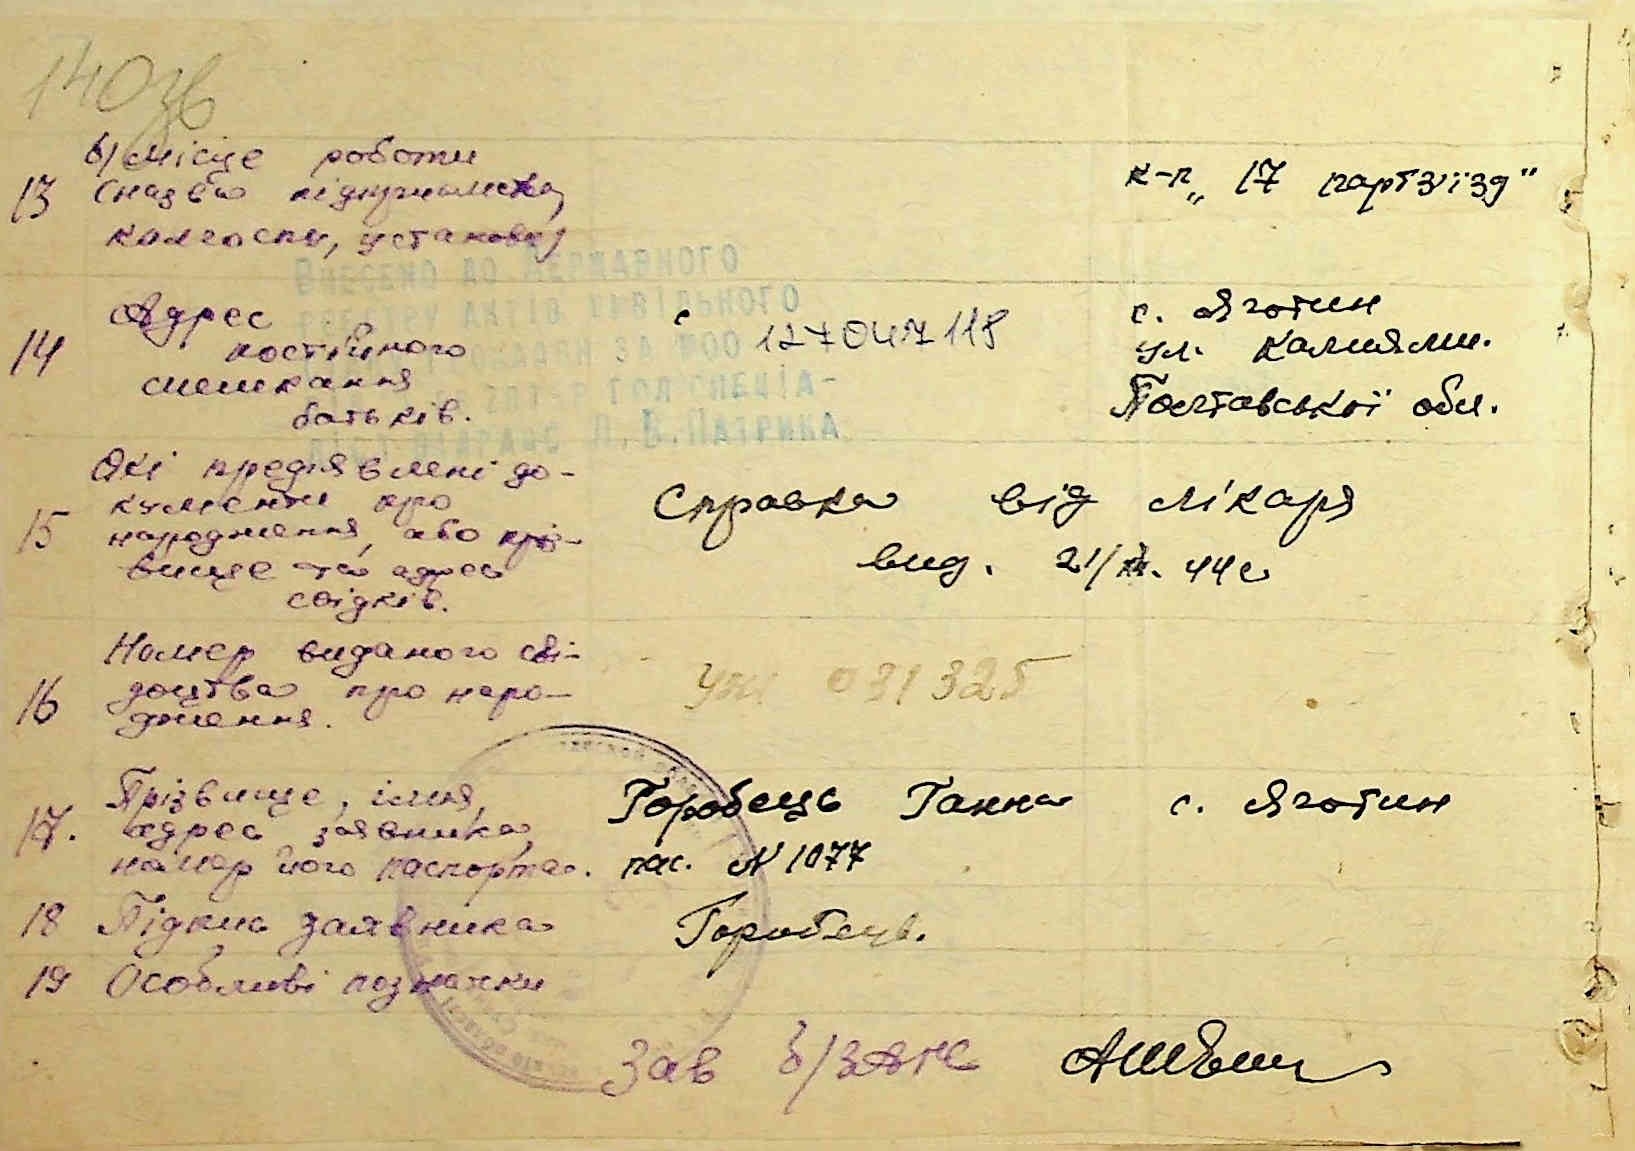 140зв
б) Місце роботи
13 (назва підприємства,
колгоспу, установи)
к-п „17 партз'їзд"
Внесено до Державного
реєстру актів цивільного
громадян за №00 127047118
14 Адрес
постійного
мешкання
батьків.
с. Яготин
ул.
Полтавської обл.
15 Які предъявлені до-
кументи про
народження, або прі-
звище та адрес
свідків.
Справка від лікаря
вид. 21/ 44 г
16 Номер виданого сві-
доцтва про наро-
дження.
031325
17. Прізвище, імья,
адрес заявника,
номер його паспорта.
Горобець Ганна с. Яготин
пас. № 1077
18 Підпис заявника
Горобець.
19 Особливі познатки
Зав б/ЗАГС